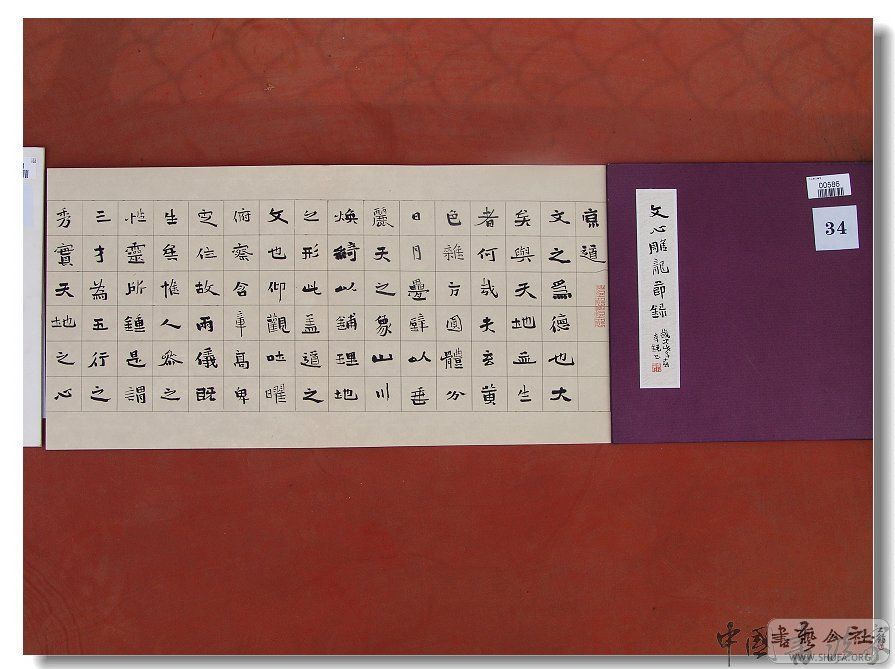 00586
34
文心雕龍節錄
原道
文之為德也大
矣與天地並生
者何哉夫玄黃
色雜方圓體分
日月疊璧以垂
麗天之象山川
煥綺以鋪理地
之形此盖道之
文也仰觀吐曜
俯察含章高卑
定位故兩儀既
生矣惟人參之
性靈所鍾是謂
三才為五行之
秀實天地之心
中國書藝公社
WWW.SHUFA.ORG